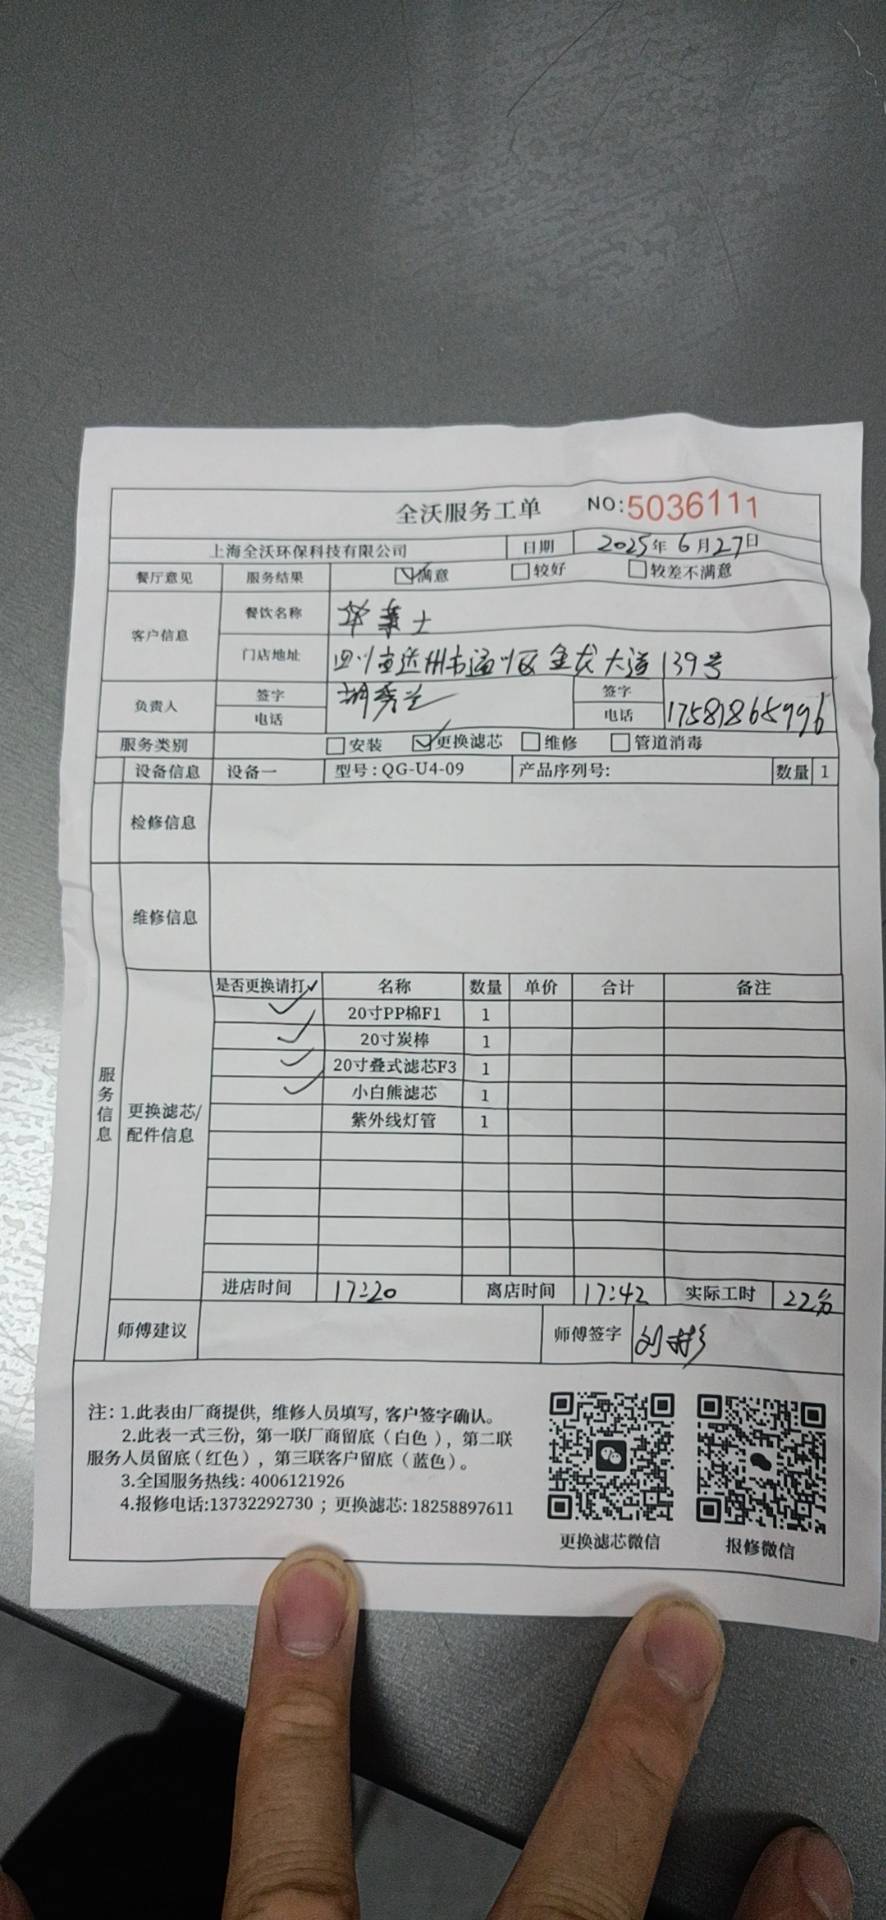 全沃服务工单 NO:5036111
上海全沃环保科技有限公司 日期 2025年6月27日
餐厅意见 服务结果 ☑满意 ☐较好 ☐较差不满意
客户信息 餐饮名称 华莱士
门店地址 四川省达州市通川区金龙大道139号
负责人 签字 胡秀兰 签字
电话 电话 17581865996
服务类别 ☐安装 ☑更换滤芯 ☐维修 ☐管道消毒
设备信息 设备一 型号:QG-U4-09 产品序列号: 数量 1
检修信息
维修信息
服务信息
更换滤芯/配件信息
是否更换请打✓ 名称 数量 单价 合计 备注
✓ 20寸PP棉F1 1
✓ 20寸炭棒 1
✓ 20寸叠式滤芯F3 1
✓ 小白熊滤芯 1
紫外线灯管 1
进店时间 17:20 离店时间 17:42 实际工时 22分
师傅建议 师傅签字 刘彬
注:1.此表由厂商提供,维修人员填写,客户签字确认。
2.此表一式三份,第一联厂商留底(白色),第二联
服务人员留底(红色),第三联客户留底(蓝色)。
3.全国服务热线:4006121926
4.报修电话:13732292730;更换滤芯:18258897611
更换滤芯微信 报修微信